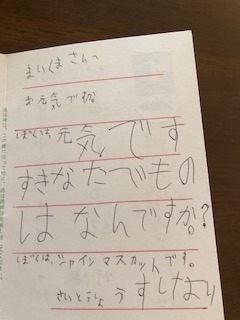 まいくまさんへ
お元気ですか
ぼくは、元気です
すきなたべもの
はなんですか?
ぼくは、シャインマスカットです。
さいとうしょうすけより